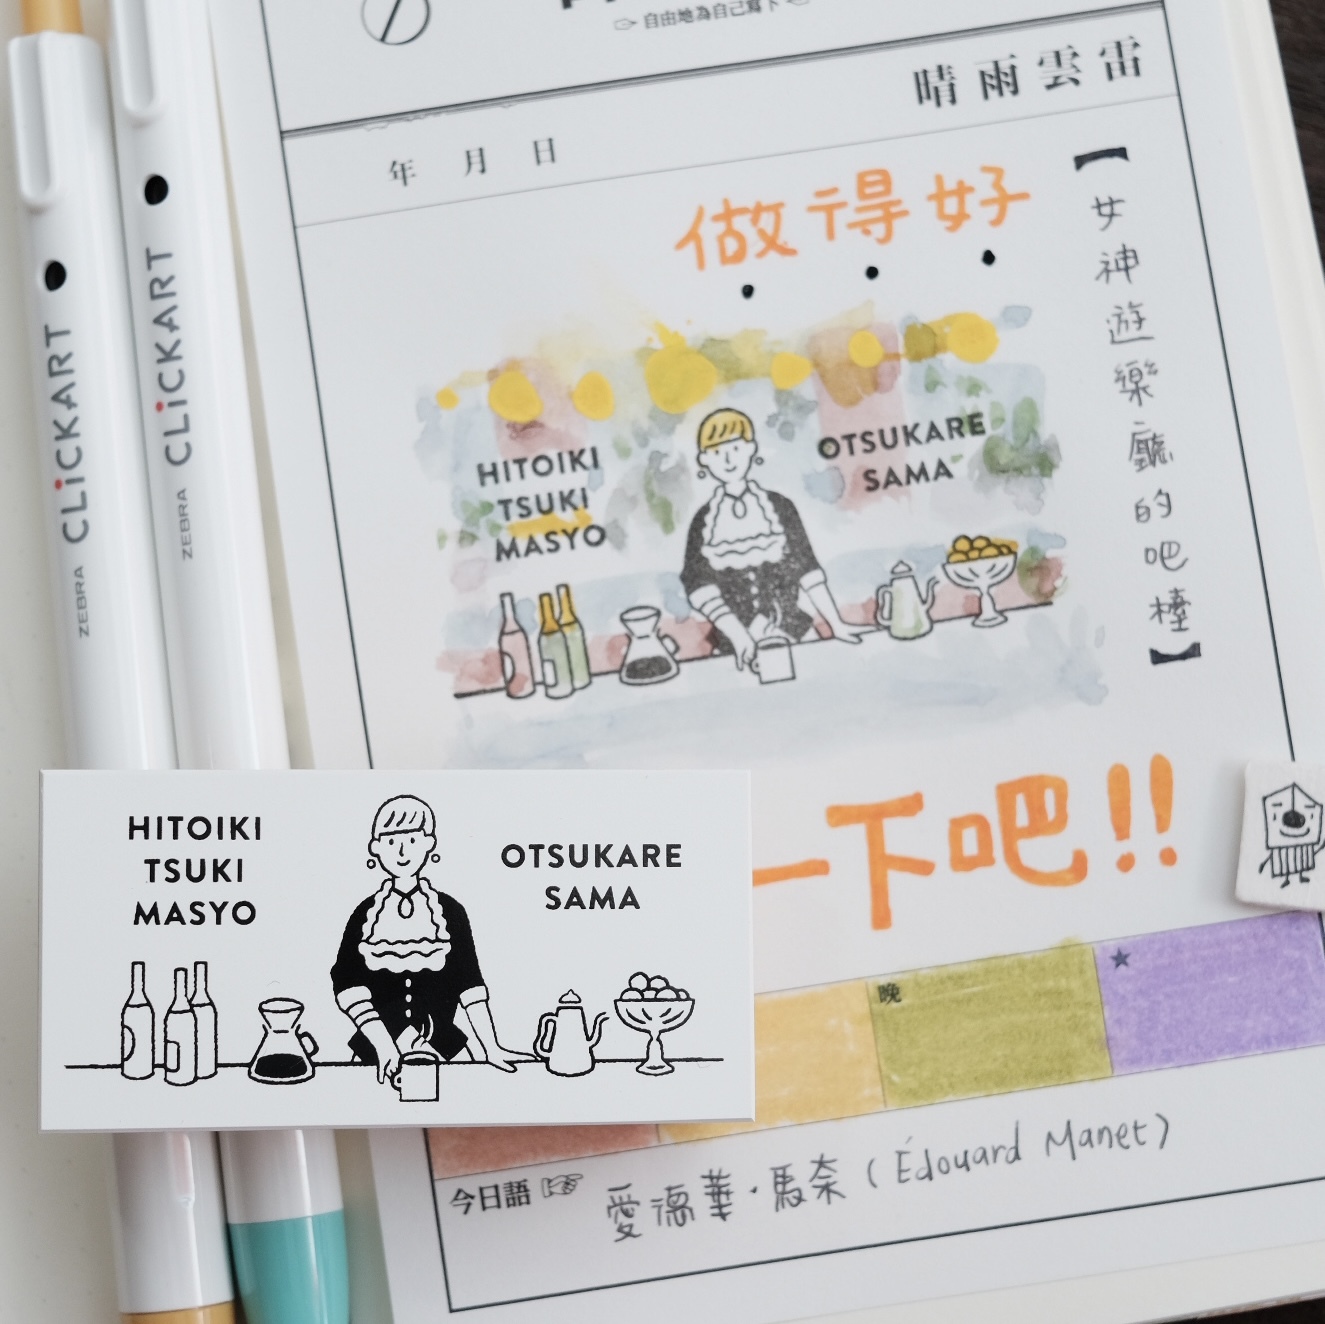 自由地為自己寫下
晴 雨 雲 雷
年 月 日
做得好
【女神遊樂廳的吧檯】
HITOIKI
TSUKI
MASYO
OTSUKARE
SAMA
一下吧!!
晚
今日語
愛德華·馬奈(Édouard Manet)
HITOIKI
TSUKI
MASYO
OTSUKARE
SAMA
ZEBRA CLiCKART
ZEBRA CLiCKART